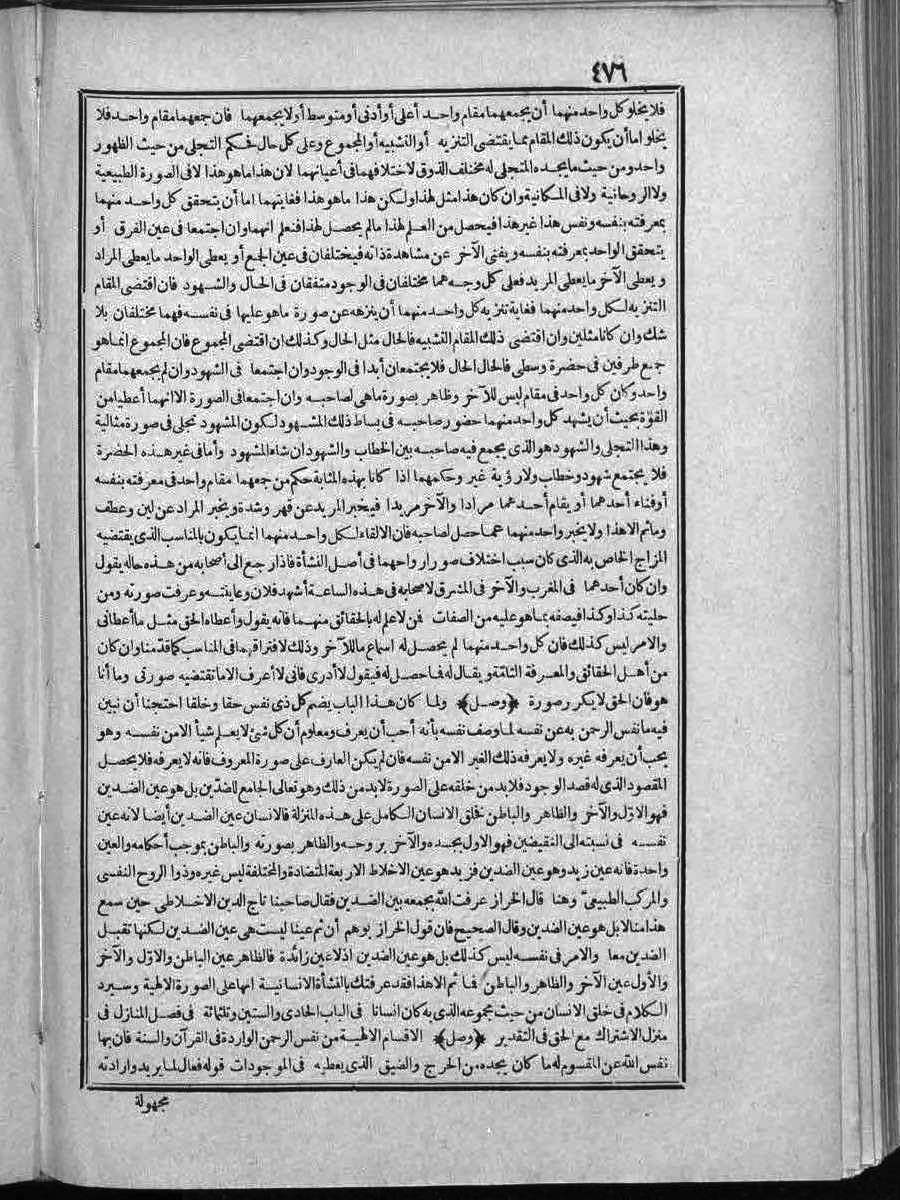 ٤٧٦
فلا يخلو كل واحد منهما أن يجمعهما مقام واحد أعلى أو أدنى أو متوسط أو لا يجمعهما فان جمعهما مقام واحد فلا
يخلو اما أن يكون ذلك المقام مما يقتضى التنزيه أو التشبيه أو المجموع وعلى كل حال فحكم التجلى من حيث الظهور
واحد ومن حيث ما يجده المتجلى له مختلف الذوق لاختلافهما فى أعيانهما لان هذا ما هو هذا لا فى الصورة الطبيعية
ولا الروحانية ولا فى المكانية وان كان هذا مثل لهذا ولكن هذا ما هو هذا فغايتهما اما أن يتحقق كل واحد منهما
بمعرفته بنفسه ونفس هذا غير هذا فيحصل من العلم لهذا ما لم يحصل لهذا فنعلم انهما وان اجتمعا فى عين الفرق أو
يتحقق الواحد بمعرفته بنفسه ويفنى الآخر عن مشاهدة ذاته فيختلفان فى عين الجمع أو يعطى الواحد ما يعطى المراد
ويعطى الآخر ما يعطى المريد فعلى كل وجه هما مختلفان فى الوجود متفقان فى الحال والشهود فان اقتضى المقام
التنزيه لكل واحد منهما فغاية تنزيه كل واحد منهما أن ينزهه عن صورة ما هو عليها فى نفسه فهما مختلفان بلا
شك وان كانا مثلين وان اقتضى ذلك المقام التشبيه فالحال مثل الحال وكذلك ان اقتضى المجموع فان المجموع انما هو
جمع طرفين فى حضرة وسطى فالحال الحال فلا يجتمعان أبدا فى الوجود وان اجتمعا فى الشهود وان لم يجمعهما مقام
واحد وكان كل واحد فى مقام ليس للآخر وظاهر بصورة ما هى لصاحبه وان اجتمعا فى الصورة الا انهما أعطيا من
القوّة بحيث أن يشهد كل واحد منهما حضور صاحبه فى بساط ذلك المشهود لكون المشهود تجلى فى صورة مثالية
وهذا التجلى والشهود هو الذى يجمع فيه صاحبه بين الخطاب والشهود ان شاء المشهود وأما فى غير هذه الحضرة
فلا يجتمع شهود وخطاب ولا رؤية غير وحكمهما اذا كانا بهذه المثابة حكم من جمعها مقام واحد فى معرفته بنفسه
أو فناء أحدهما أو يقام أحدهما مرادا والآخر مريدا فيخبر المريد عن قهر وشدة ويخبر المراد عن لين وعطف
وما ثم الا هذا ولا يخبر واحد منهما عما حصل لصاحبه فان الالقاء لكل واحد منهما انما يكون بالمناسب الذى يقتضيه
المزاج الخاص به الذى كان سبب اختلاف صور ارواحهما فى أصل النشأة فاذا رجع الى أصحابه من هذه حاله يقول
وان كان أحدهما فى المغرب والآخر فى المشرق لاصحابه فى هذه الساعة أشهد فلان وعاينته وعرفت صورته ومن
حليته كذا وكذا فيصفه بما هو عليه من الصفات فمن لا علم له بالحقائق منهما فانه يقول وأعطاه الحق مثل ما أعطانى
والامر ليس كذلك فان كل واحد منهما لم يحصل له اسماع ما للآخر وذلك لافتراقهما فى المناسب كما قدّمنا وان كان
من أهل الحقائق والمعرفة التامة ويقال له فما حصل له فيقول لا أدرى فانى لا أعرف الا ما تقتضيه صورتى وما أنا
هو فان الحق لا يكرر صورة ﴿وصل﴾ ولما كان هذا الباب يضم كل ذى نفس حقا وخلقا احتجنا أن نبين
فيه ما نفس الرحمن به عن نفسه لما وصف نفسه بأنه أحب أن يعرف ومعلوم أن كل شئ لا يعلم شيأ الا من نفسه وهو
يحب أن يعرفه غيره ولا يعرفه ذلك الغير الا من نفسه فان لم يكن العارف على صورة المعروف فانه لا يعرفه فلا يحصل
المقصود الذى له قصد الوجود فلا بد من خلقه على الصورة لا بد من ذلك وهو تعالى الجامع للضدّين بل هو عين الضدين
فهو الاوّل والآخر والظاهر والباطن فخلق الانسان الكامل على هذه المنزلة فالانسان عين الضدين أيضا لانه عين
نفسه فى نسبته الى النقيضين فهو الاول بجسده والآخر بروحه والظاهر بصورته والباطن بموجب أحكامه والعين
واحدة فانه عين زيد وهو عين الضدين فزيد هو عين الاخلاط الاربعة المتضادة والمختلفة ليس غيره وذو الروح النفسى
والمركب الطبيعىّ وهنا قال الخراز عرفت اللّه بجمعه بين الضدين فقال صاحبنا تاج الدين الاخلاطى حين سمع
هذا منا لا بل هو عين الضدين وقال الصحيح فان قول الخراز يوهم أن ثم عينا ليست هى عين الضدين لكنها تقبل
الضدين معا والامر فى نفسه ليس كذلك بل هو عين الضدين اذ لا عين زائدة فالظاهر عين الباطن والاوّل والآخر
والأول عين الآخر والظاهر والباطن فما ثم الا هذا فقد عرفتك بالنشأة الانسانية انها على الصورة الالهية وسيرد
الكلام فى خلق الانسان من حيث مجموعه الذى به كان انسانا فى الباب الحادى والستين وثلثمائة فى فصل المنازل فى
منزل الاشتراك مع الحق فى التقدير ﴿وصل﴾ الاقسام الالهية من نفس الرحمن الواردة فى القرآن والسنة فان بها
نفس اللّه عن المقسوم له ما كان يجده من الحرج والضيق الذى يعطيه فى الموجودات قوله فعال لما يريد وارادته
مجهولة